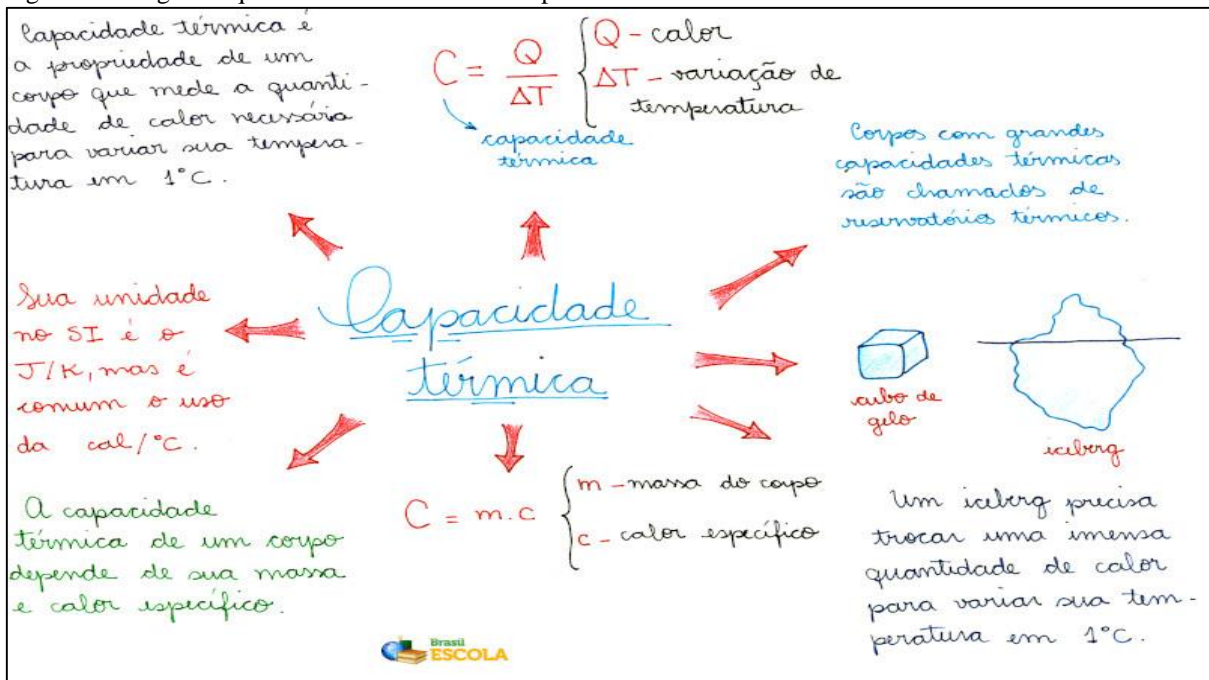 Capacidade térmica é
a propriedade de um
corpo que mede a quanti-
dade de calor necessária
para variar sua tempera-
tura em 1°C.
C = Q
ΔT
capacidade
térmica
Q - calor
ΔT - variação de
temperatura
Corpos com grandes
capacidades térmicas
são chamados de
reservatórios térmicos.
Sua unidade
no SI é o
J/K, mas é
comum o uso
da cal/°C.
Capacidade
térmica
cubo de
gelo
iceberg
A capacidade
térmica de um corpo
depende de sua massa
e calor específico.
C = m.c
m - massa do corpo
c - calor específico
Um iceberg precisa
trocar uma imensa
quantidade de calor
para variar sua tem-
peratura em 1°C.
Brasil
ESCOLA